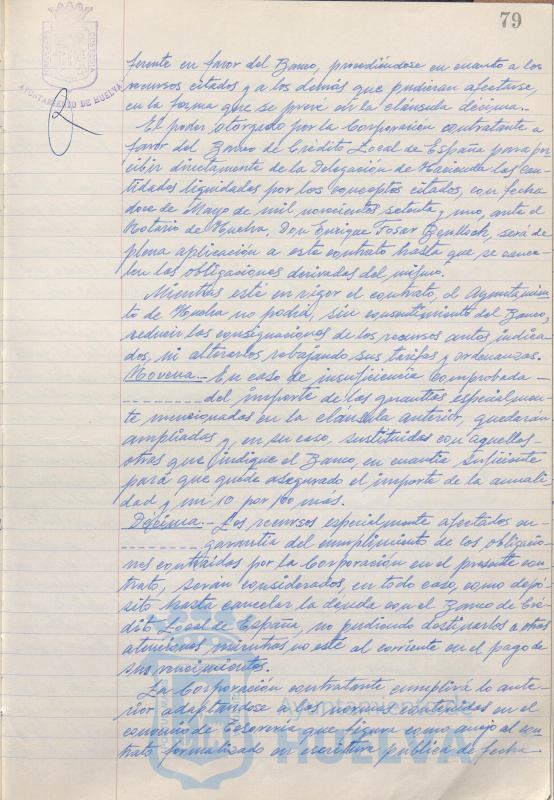 79
AYUNTAMIENTO DE HUELVA
ferente en favor del Banco, procediéndose en cuanto a los
recursos citados y a los demás que pudieran afectarse,
en la forma que se prevé en la cláusula décima.-
El poder otorgado por la Corporación contratante a
favor del Banco de Crédito Local de España para per-
cibir directamente de la Delegación de Hacienda las can-
tidades liquidadas por los conceptos citados, con fecha
doce de Mayo de mil novecientos setenta y uno, ante el
Notario de Huelva, Don Enrique Fosar Benlloch, será de
plena aplicación a este contrato hasta que se cance-
len las obligaciones derivadas del mismo.
Mientras esté en vigor el contrato, el Ayuntamien-
to de Huelva no podrá, sin consentimiento del Banco,
reducir las consignaciones de los recursos antes indica-
dos, ni alterarlos rebajando sus tarifas y ordenanzas.
Novena.- En caso de insuficiencia comprobada -
---------- del importe de las garantías especialmen-
te mencionadas en la cláusula anterior, quedarán
ampliadas y, en su caso, sustituidas con aquellos-
otras que indique el Banco, en cuantía suficiente
para que quede asegurado el importe de la anuali-
dad y un 10 por 100 más.
Décima.- Los recursos especialmente afectados en-
---------- garantía del cumplimiento de las obligacio-
nes contraídas por la Corporación en el presente con-
trato, serán considerados, en todo caso, como depó-
sito hasta cancelar la deuda con el Banco de Cré-
dito Local de España, no pudiendo destinarlos a otras
atenciones mientras no esté al corriente en el pago de
sus vencimientos.
La Corporación contratante cumplirá lo ante-
rior adaptándose a las normas contenidas en el
convenio de tesorería que figura como anejo al con-
trato formalizado en escritura pública de fecha
Ayuntamiento de
HUELVA